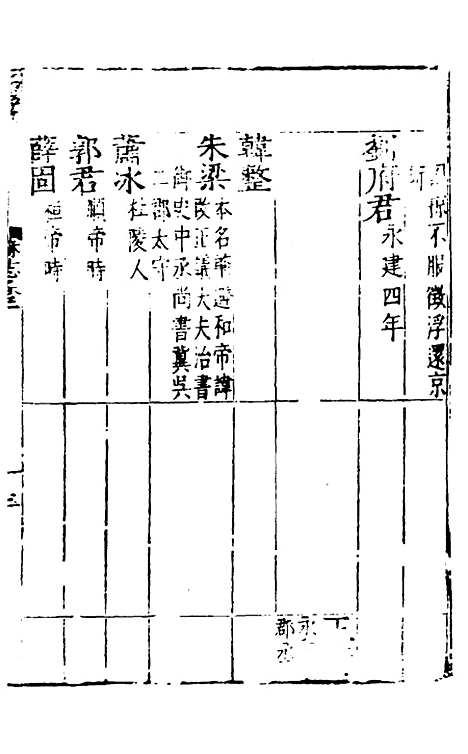 不服徵浮還京
府君永建四年
韓整
朱梁本名肇避和帝諱
改正議大夫治書
御史中丞尚書冀吳
二郡太守
蕭冰杜陵人
郭君順帝時
薛固桓帝時
郡丞